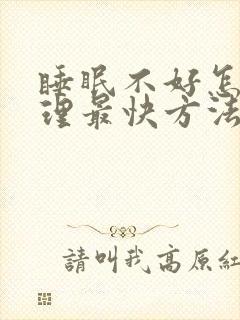 睡眠不好怎
理最快方法
請叫我高原紅